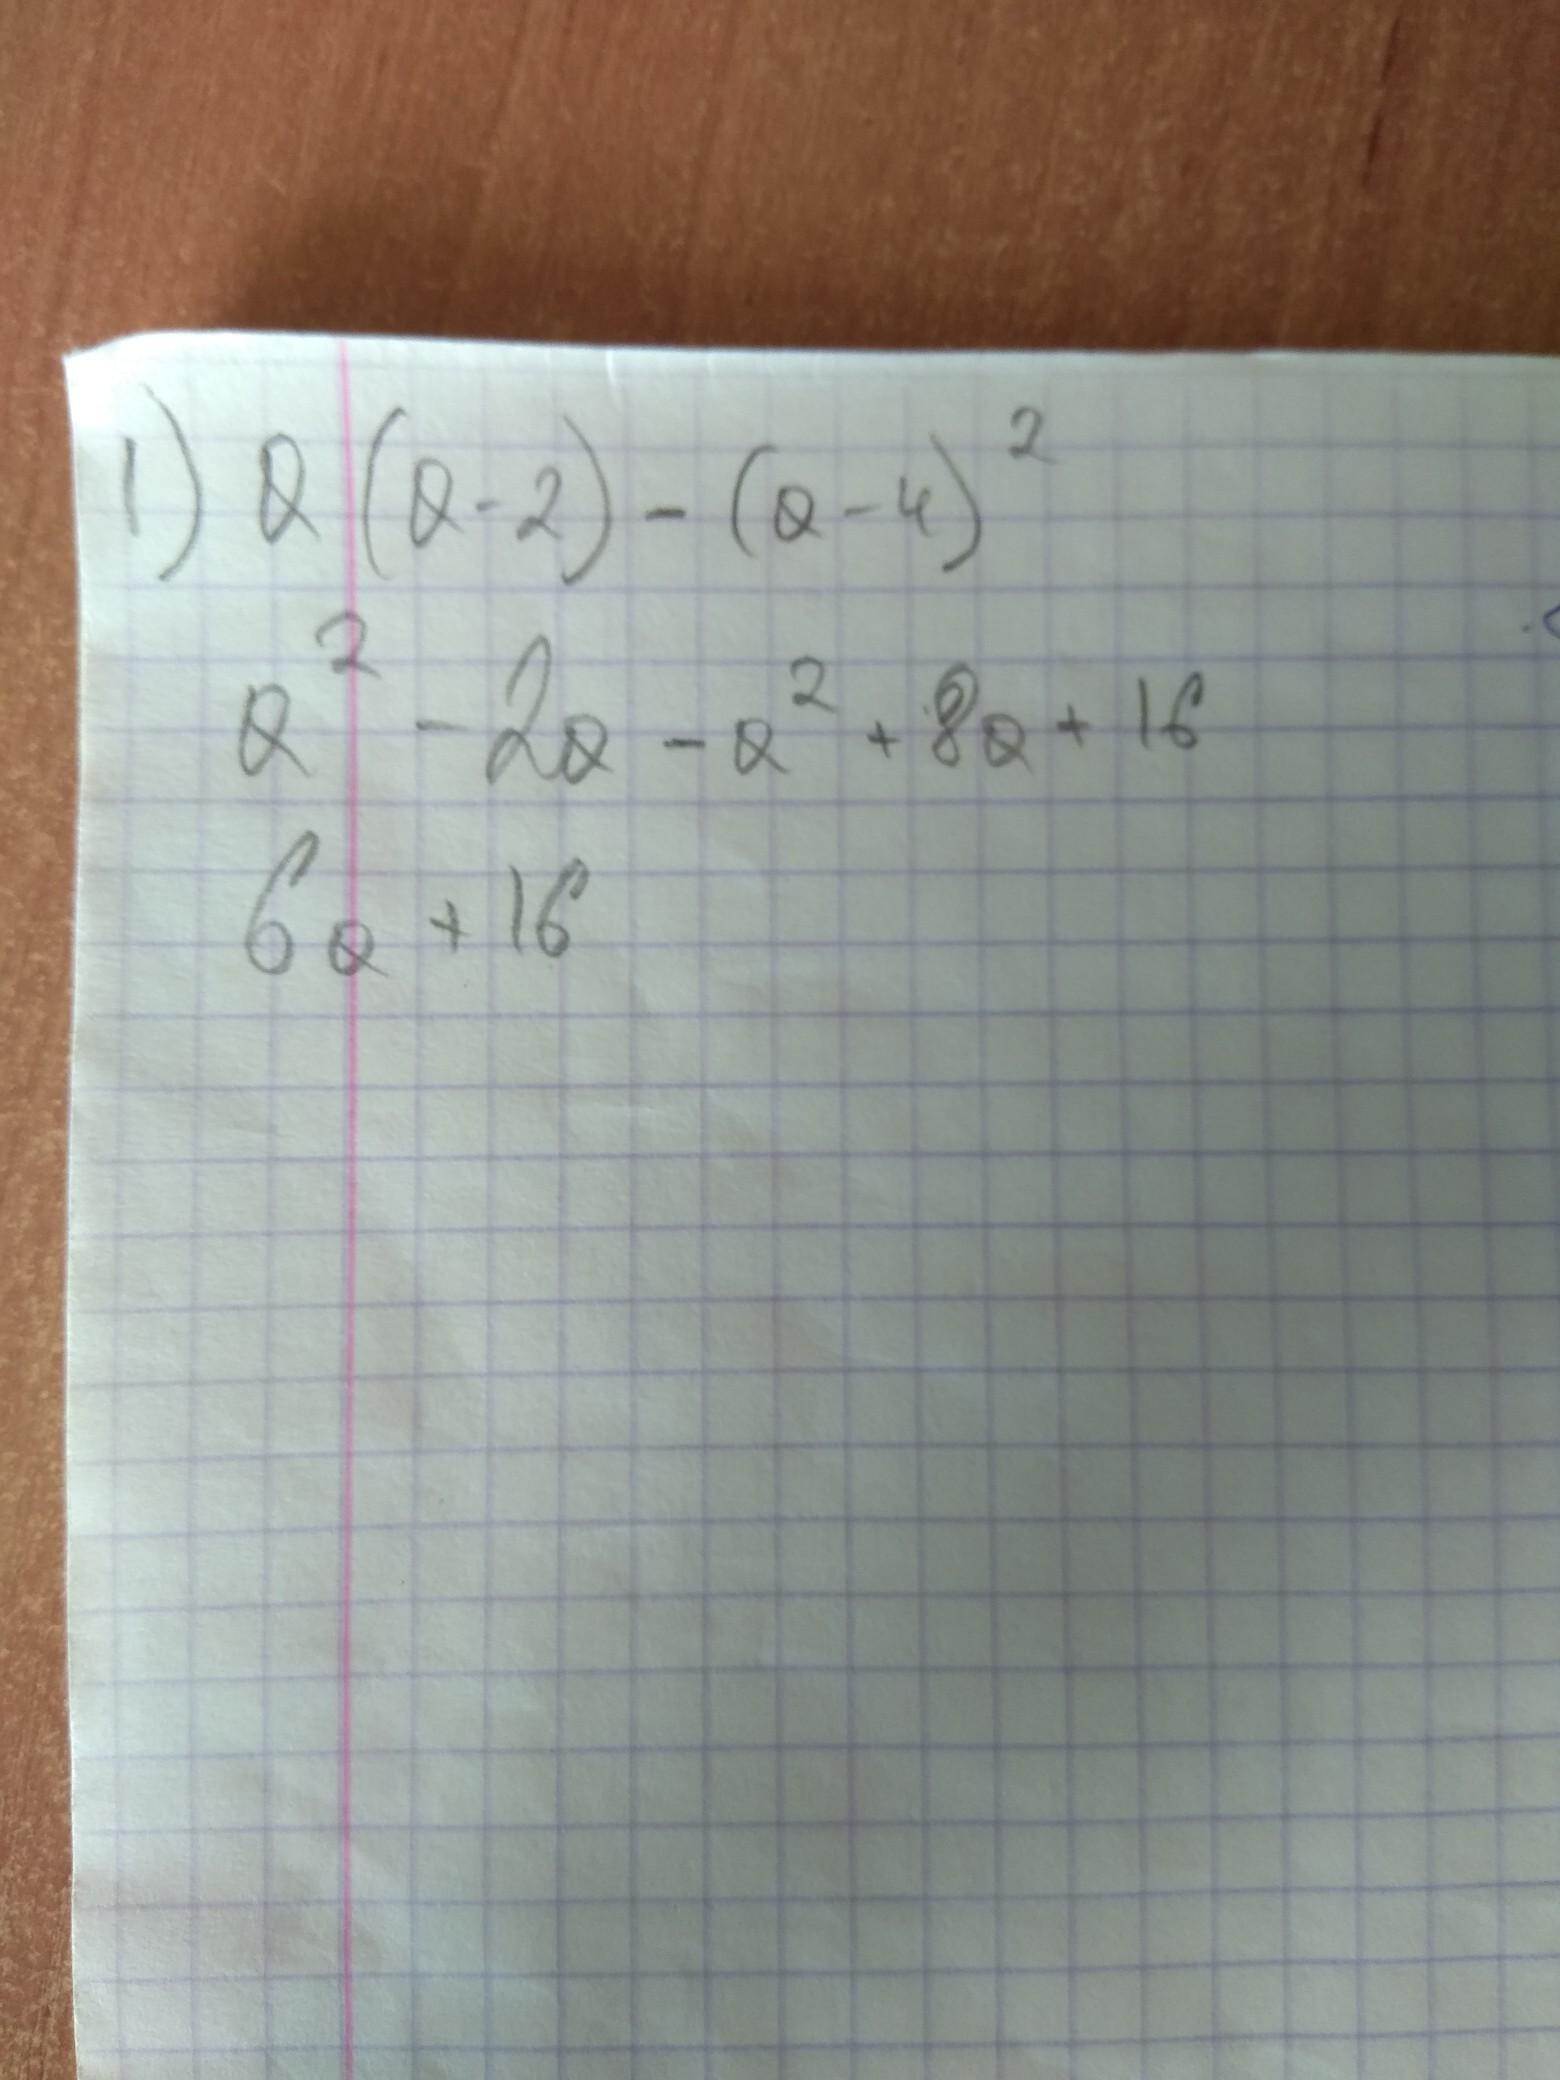 1) a(a-2) - (a-4)²
a² - 2a - a² + 8a + 16
6a + 16